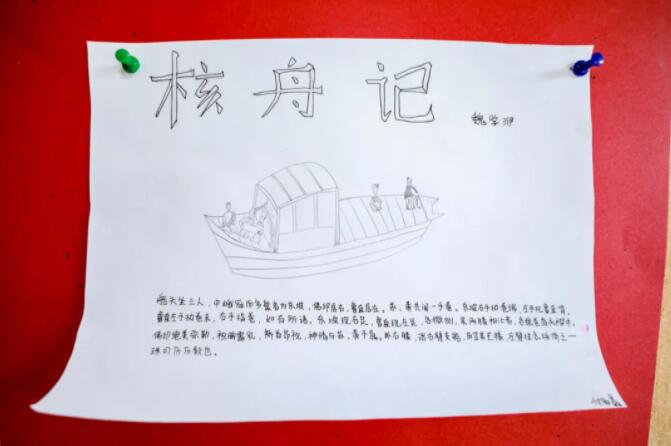 核舟记
魏学洢
船头坐三人,中峨冠而多髯者为东坡,佛印居右,鲁直居左。苏、黄共阅一手卷。东坡右手执卷端,左手抚鲁直背。
鲁直左手执卷末,右手指卷,如有所语。东坡现右足,鲁直现左足,各微侧,其两膝相比者,各隐卷底衣褶中。
佛印绝类弥勒,袒胸露乳,矫首昂视,神情与苏、黄不属。卧右膝,诎右臂支船,而竖其左膝,左臂挂念珠倚之——
珠可历历数也。